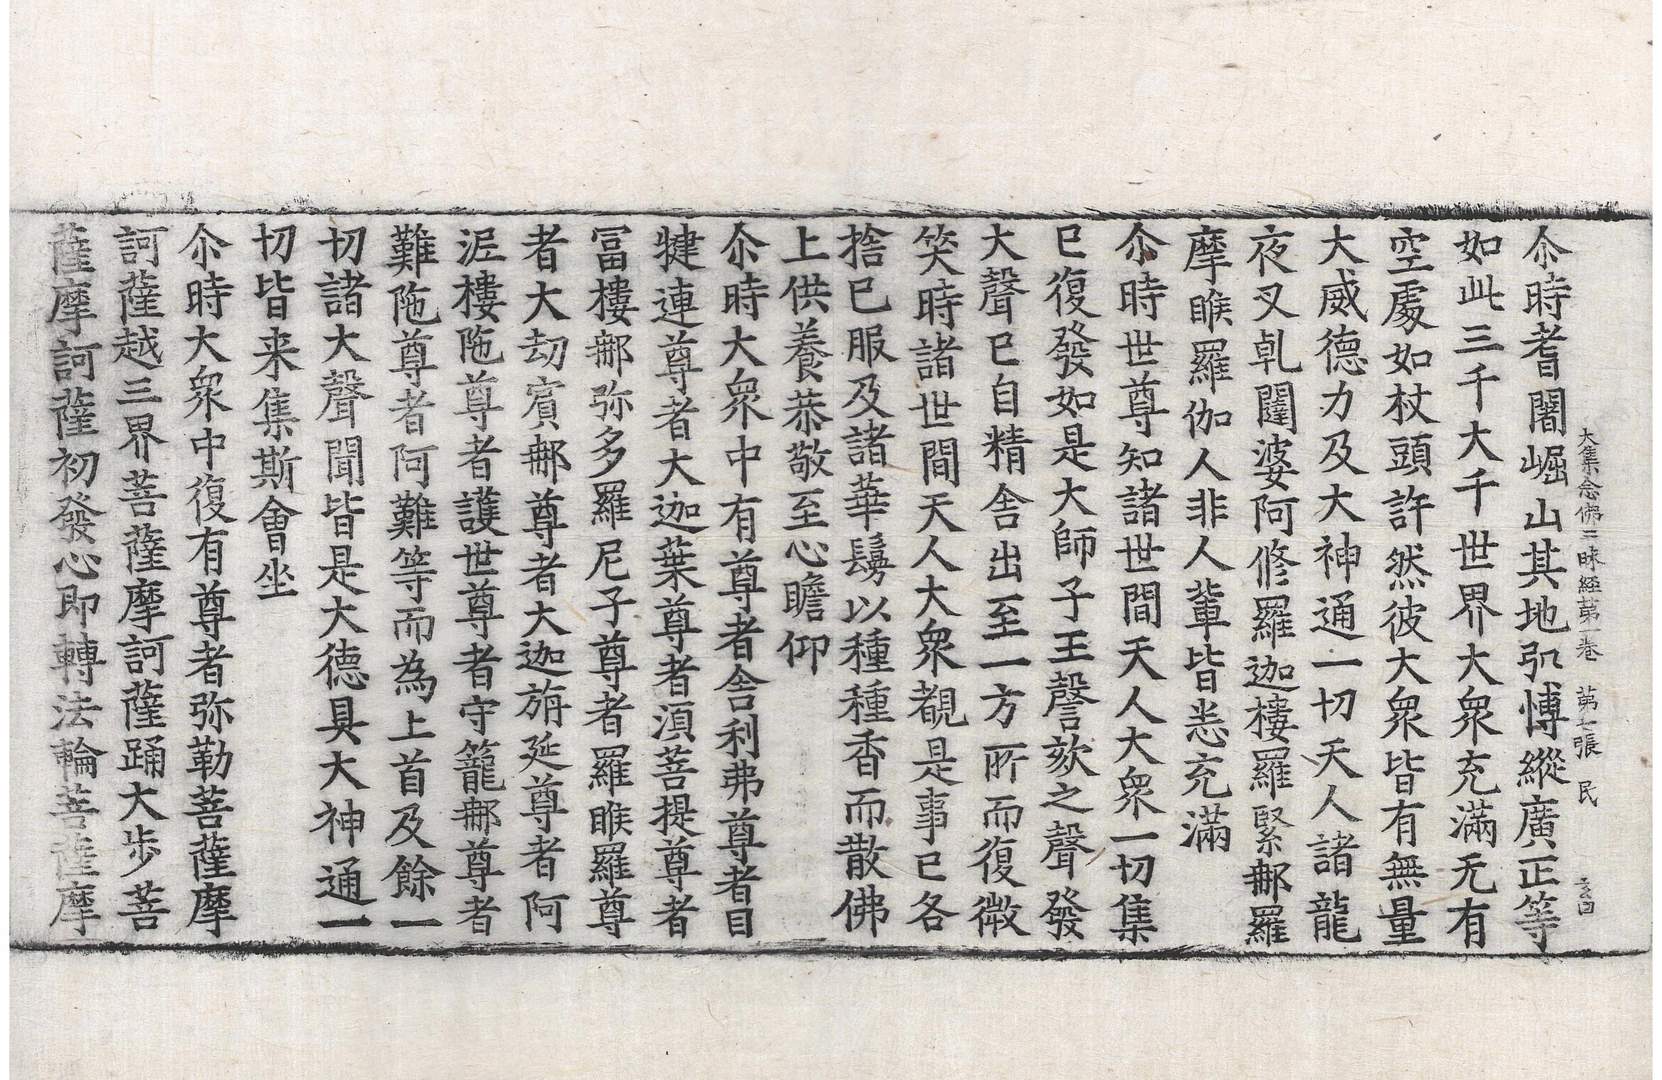 大集念佛三昧經第一卷 第七張 民
尒時耆闍崛山其地弘愽縱廣正等
如此三千大千世界大衆充滿无有
空處如杖頭許然彼大衆皆有無量
大威德力及大神通一切天人諸龍
夜叉乹闥婆阿修羅迦樓羅緊郍羅
摩睺羅伽人非人輩皆悉充滿
尒時世尊知諸世間天人大衆一切集
已復發如是大師子王謦欬之聲發
大聲已自精舍出至一方所而復微
笑時諸世間天人大衆覩是事已各
捨已服及諸華鬘以種種香而散佛
上供養恭敬至心瞻仰
尒時大衆中有尊者舍利弗尊者目
犍連尊者大迦葉尊者湏菩提尊者
冨樓郍弥多羅尼子尊者羅睺羅尊
者大劫賔郍尊者大迦旃延尊者阿
泥樓陁尊者護世尊者守籠郍尊者
難陁尊者阿難等而為上首及餘一
切諸大聲聞皆是大德具大神通一
切皆来集斯會坐
尒時大衆中復有尊者弥勒菩薩摩
訶薩越三界菩薩摩訶薩踊大步菩
薩摩訶薩初發心即轉法輪菩薩摩